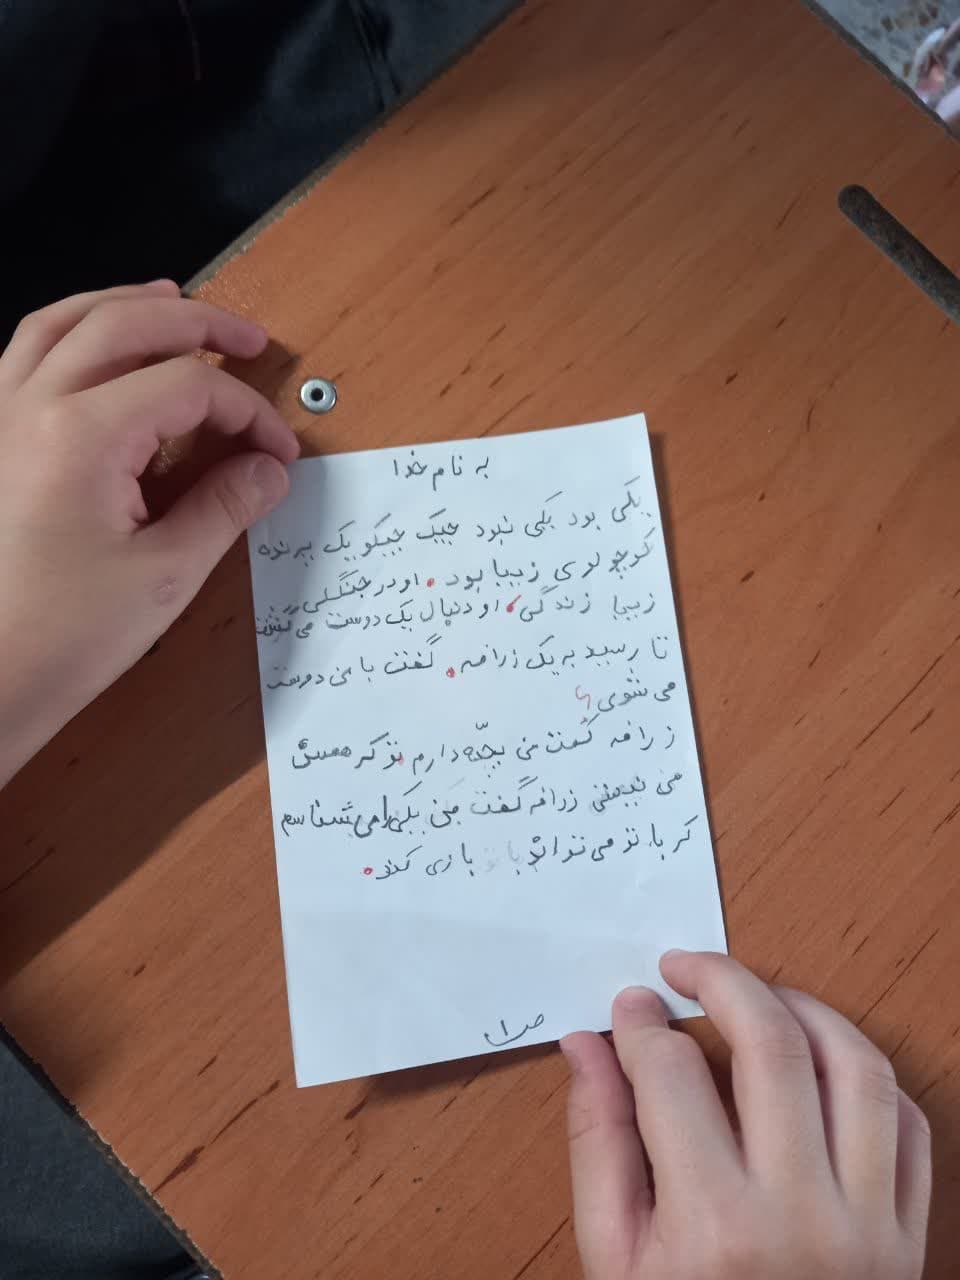 به نام خدا
یکی بود یکی نبود جیک جیکو یک پرنده
کوچولوی زیبا بود. او در جنگلی
زیبا زندگی، او دنبال یک دوست می گشت
تا رسید به یک زرافه. گفت با من دوست
می شوی؟
زرافه گفت من بچّه دارم تو که همسن
من نیستی زرافه گفت من یکی را می شناسم
که با تو می تواند بازی کند.
ص۱